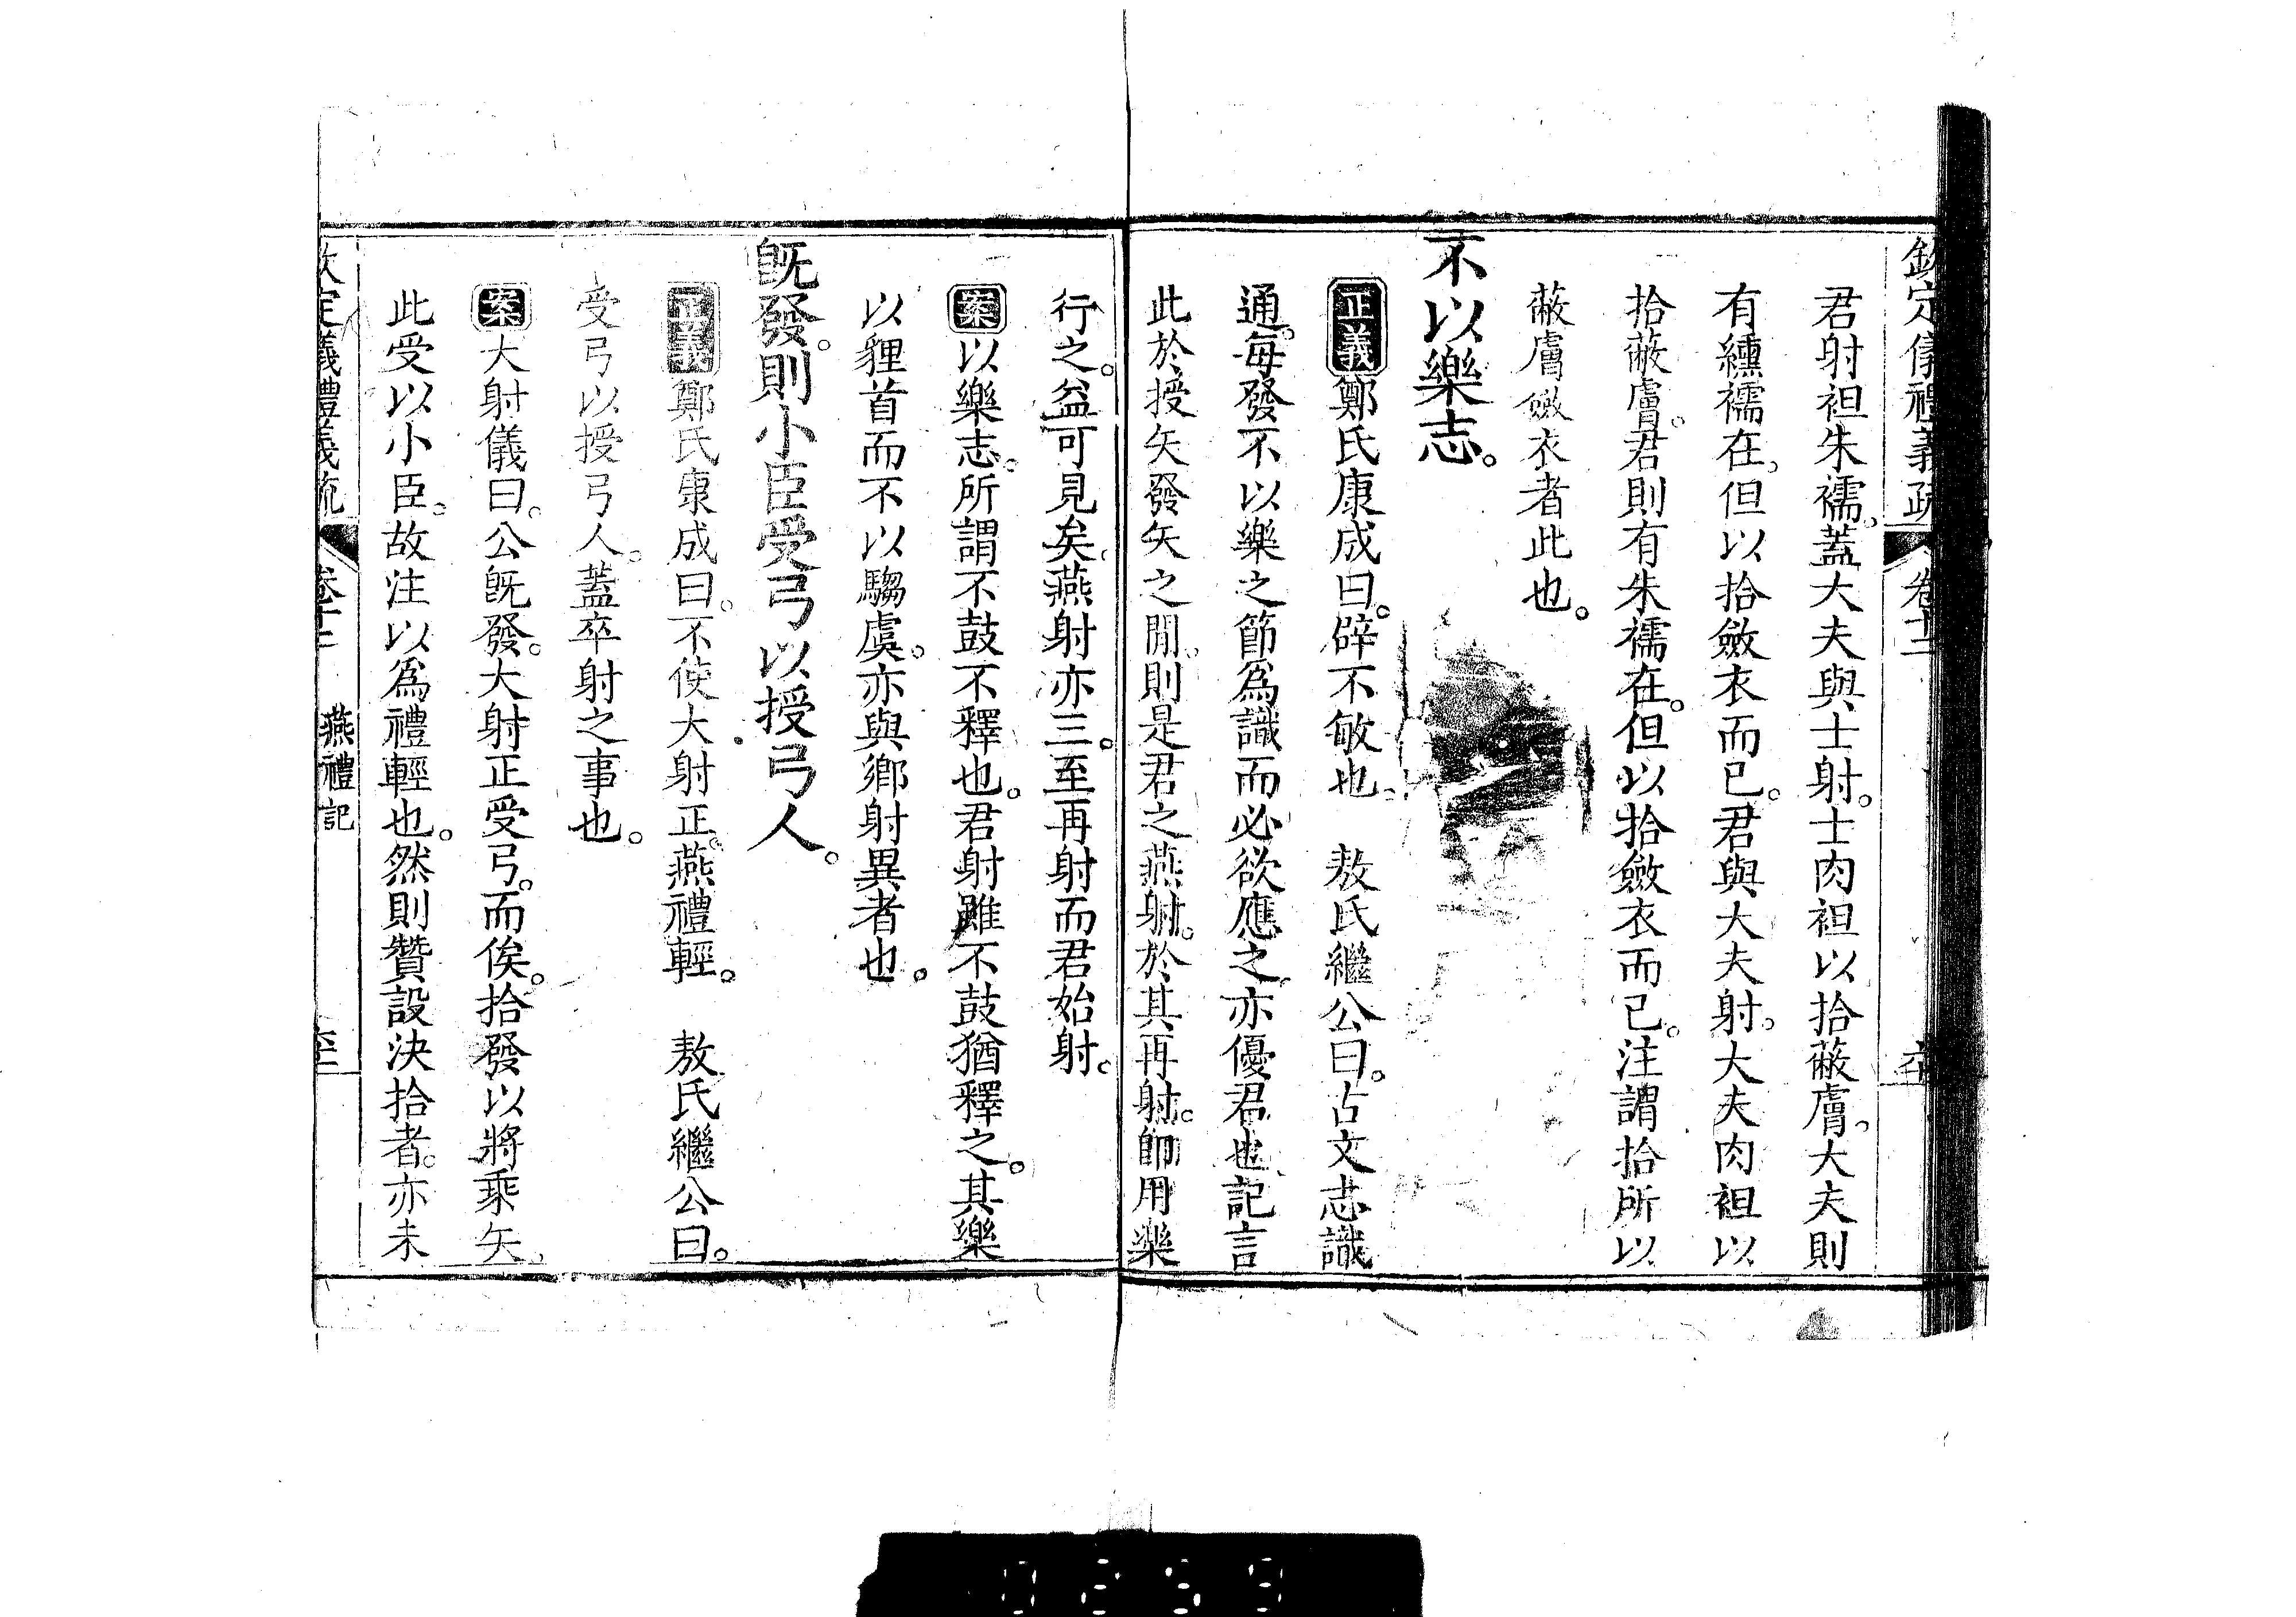 欽定儀禮義疏 卷十二
君射袒朱襦。蓋大夫與士射。士肉袒以拾蔽膚。大夫則
有纁襦在。但以拾斂衣而已。君與大夫射。大夫肉袒以
拾蔽膚。君則有朱襦在。但以拾斂衣而已。注謂拾所以
蔽膚斂衣者此也。
不以樂志。
正義鄭氏康成曰。辟不敏也。 敖氏繼公曰。古文志識
通。每發不以樂之節爲識而必欲應之。亦優君也。記言
此於授矢發矢之閒。則是君之燕射。於其再射。卽用樂
行之。益可見矣。燕射亦三。至再射而君始射。
案以樂志。所謂不鼓不釋也。君射雖不鼓猶釋之。其樂
以貍首而不以騶虞。亦與鄉射異者也。
旣發。則小臣受弓以授弓人。
正義鄭氏康成曰。不使大射正。燕禮輕。 敖氏繼公曰。
受弓以授弓人。蓋卒射之事也。
案大射儀曰。公旣發。大射正受弓。而俟。拾發以將乘矢。
此受以小臣。故注以爲禮輕也。然則贊設決拾者。亦未
欽定儀禮義疏 卷十二 燕禮記
0259